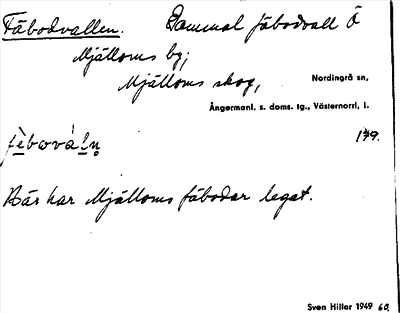 Fäbodvallen. Gammal fäbodvall Ö
Mjälloms by;
Mjälloms skog,
Nordingrå sn,
Ångermanl. s. doms. tg., Västernorrl, l.
179.
Där har Mjälloms fäbodar legat.
Sven Hiller 1949 60,